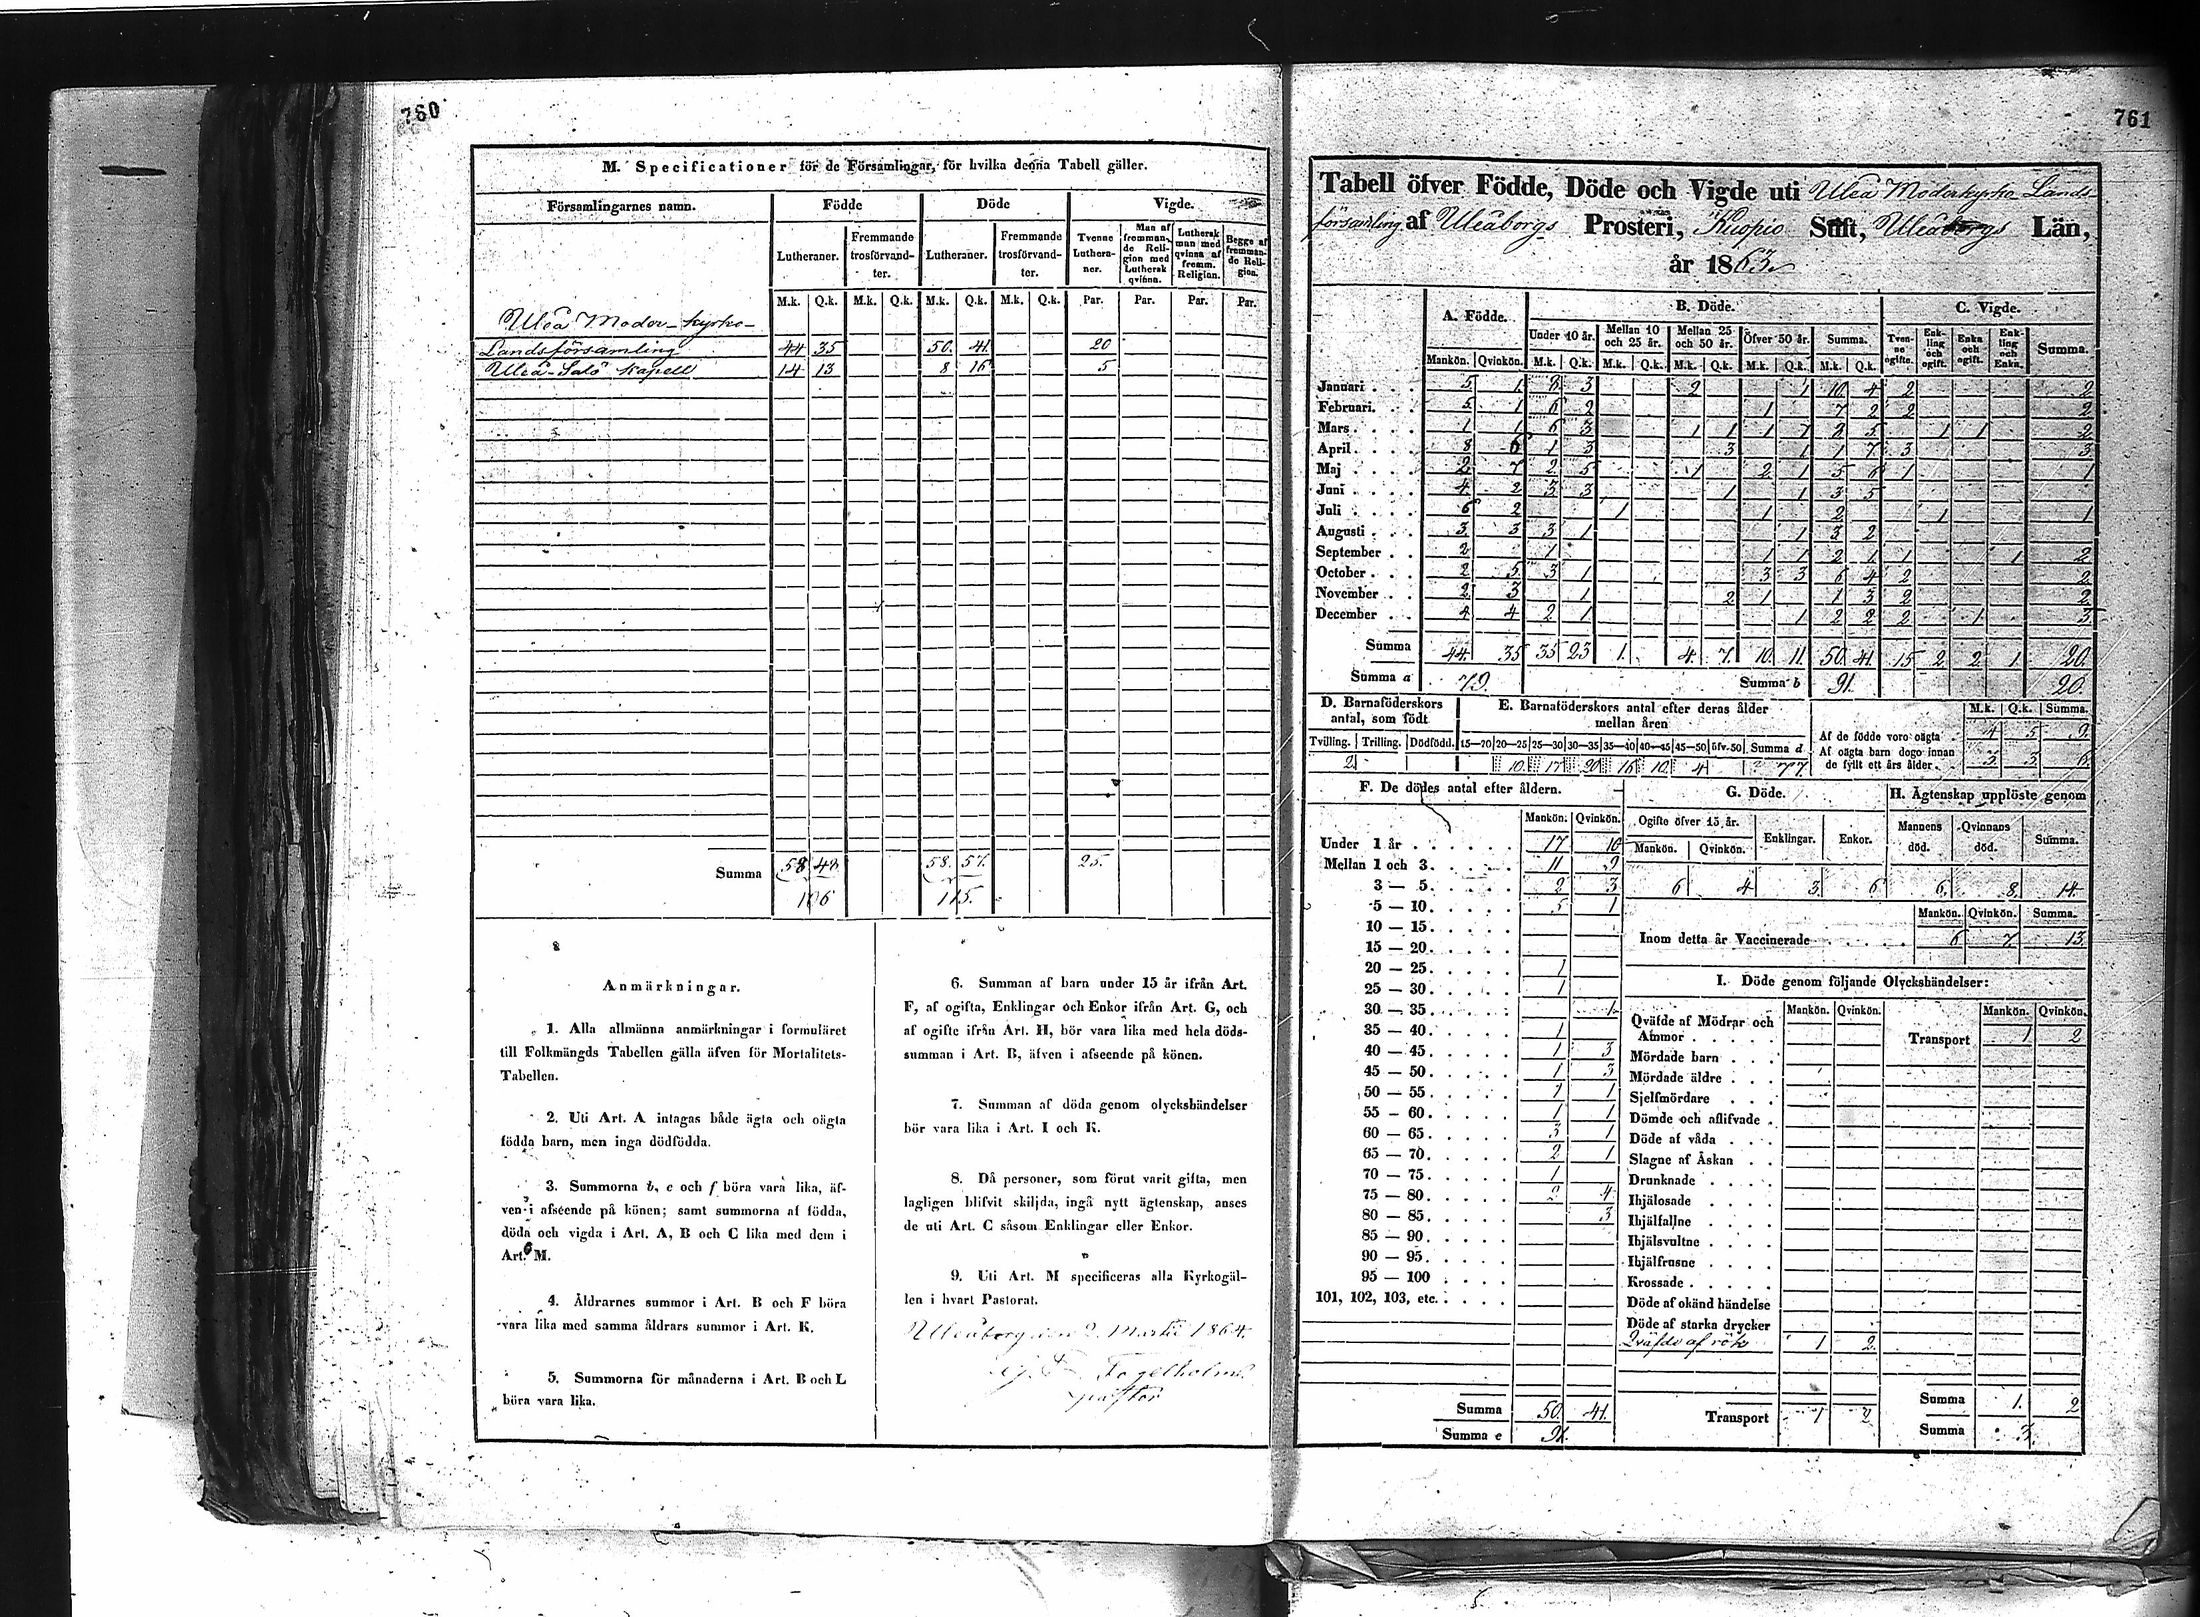 760
M. Specificationer för de Församlingar, för hvilka denna Tabell gäller.
Församlingarnes namn. Födde Döde Vigde.
Lutheraner. Fremmande trosförvandter. Lutheraner. Fremmande trosförvandter. Tvenne Lutheraner. Man af fremmande Religion med Luthersk qvinna. Luthersk man med qvinna af fremm. Religion. Begge af fremmande Religion.
M.k. Q.k. M.k. Q.k. M.k. Q.k. M.k. Q.k. Par. Par. Par. Par.
Uleå Moder-kyrko-
Landsförsamling 44 35 50. 41. 20
Uleå-Salo kapell 14 13 8 16 5
Summa 58 48 58. 57. 25.
106 115.
Anmärkningar.
1. Alla allmänna anmärkningar i formuläret
till Folkmängds Tabellen gälla äfven för Mortalitets-
Tabellen.
2. Uti Art. A intagas både ägta och oägta
födda barn, men inga dödfödda.
3. Summorna b, e och f böra vara lika, äf-
ven i afseende på könen; samt summorna af födda,
döda och vigda i Art. A, B och C lika med dem i
Art. M.
4. Åldrarnes summor i Art. B och F böra
vara lika med samma åldrars summor i Art. K.
5. Summorna för månaderna i Art. B och L
böra vara lika.
6. Summan af barn under 15 år ifrån Art.
F, af ogifta, Enklingar och Enkor ifrån Art. G, och
af ogifte ifrån Art. H, bör vara lika med hela döds-
summan i Art. B, äfven i afseende på könen.
7. Summan af döda genom olyckshändelser
bör vara lika i Art. I och K.
8. Då personer, som förut varit gifta, men
lagligen blifvit skiljda, ingå nytt ägtenskap, anses
de uti Art. C såsom Enklingar eller Enkor.
9. Uti Art. M specificeras alla Kyrkogäl-
len i hvart Pastorat.
Uleåborg den 2 Martii 1864.
Fogelholm
pastor
761
Tabell öfver Födde, Döde och Vigde uti Uleå Moderkyrko Lands-
församling af Uleåborgs Prosteri, Kuopio Stift, Uleåborgs Län,
år 1863
A. Födde. B. Döde. C. Vigde.
Under 10 år. Mellan 10 och 25 år. Mellan 25 och 50 år. Öfver 50 år. Summa. Tvenne ogifte. Enkling och ogift. Enka och ogift. Enkling och Enka. Summa.
Mankön. Qvinkön. M.k. Q.k. M.k. Q.k. M.k. Q.k. M.k. Q.k. M.k. Q.k.
Januari 5 1 8 3 2 1 10 4 2 2
Februari. 5 1 6 2 1 7 2 2 2
Mars 1 1 6 3 1 1 1 1 8 5 1 1 2
April. 8 6 1 3 3 1 1 7 3 3
Maj 2 7 2 5 1 2 1 5 6 1 1
Juni 4 2 3 3 1 1 3 5
Juli 6 2 1 1 2 1 1
Augusti 3 3 3 1 1 3 2
September 2 1 1 1 2 1 1 1 2
October 2 5 3 1 3 3 6 4 2 2
November 2 3 1 2 1 1 3 2 2
December 4 4 2 1 1 2 2 2 1 3
Summa 44. 35 35 23 1. 4. 7. 10. 11. 50. 41. 15 2 2 1 20.
Summa a 79. Summa b 91. 20.
D. Barnaföderskors antal, som födt
Tvilling. Trilling. Dödfödd.
2
E. Barnaföderskors antal efter deras ålder mellan åren
15—20 20—25 25—30 30—35 35—40 40—45 45—50 öfv. 50 Summa d
10. 17 20 16 10. 4 77.
M.k. Q.k. Summa.
Af de födde voro oägta 4 5 9.
Af oägta barn dogo innan
de fyllt ett års ålder 3 3 6.
F. De dödes antal efter åldern.
Mankön. Qvinkön.
Under 1 år 17 10
Mellan 1 och 3. 11 9
3 — 5. 2 3
5 — 10. 5 1
10 — 15.
15 — 20.
20 — 25. 1
25 — 30. 1
30 — 35. 1.
35 — 40. 1
40 — 45. 1 3
45 — 50. 1 3
50 — 55. 1 1
55 — 60. 1 1
60 — 65. 3 1
65 — 70. 2 1
70 — 75. 1
75 — 80. 2 4
80 — 85. 3
85 — 90.
90 — 95.
95 — 100
101, 102, 103, etc.
Summa 50. 41.
Summa e 91.
G. Döde.
Ogifte öfver 15 år. Enklingar. Enkor.
Mankön. Qvinkön.
6 4 3. 6
H. Ägtenskap upplöste genom
Mannens död. Qvinnans död. Summa.
6. 8. 14.
Mankön. Qvinkön. Summa.
Inom detta år Vaccinerade 6 7. 13.
I. Döde genom följande Olyckshändelser:
Mankön. Qvinkön. Mankön. Qvinkön.
Qväfde af Mödrar och
Ammor
Transport 1 2
Mördade barn
Mördade äldre
Sjelfmördare
Dömde och aflifvade
Döde af våda
Slagne af Åskan
Drunknade
Ihjälosade
Ihjälfallne
Ihjälsvultne
Ihjälfrusne
Krossade
Döde af okänd händelse
Döde af starka drycker
Qväfde af rök 1 2.
Transport 1 2
Summa 1. 2
Summa 3.